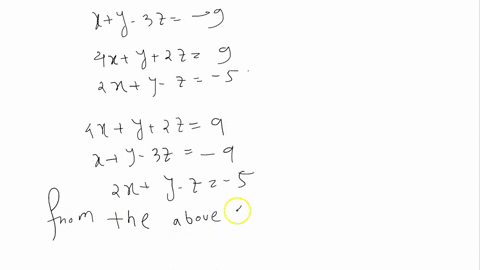 x+y-3z=-9
4x+y+2z=9
2x+y-z=-5
4x+y+2z=9
x+y-3z=-9
2x+y-z=-5
from the above